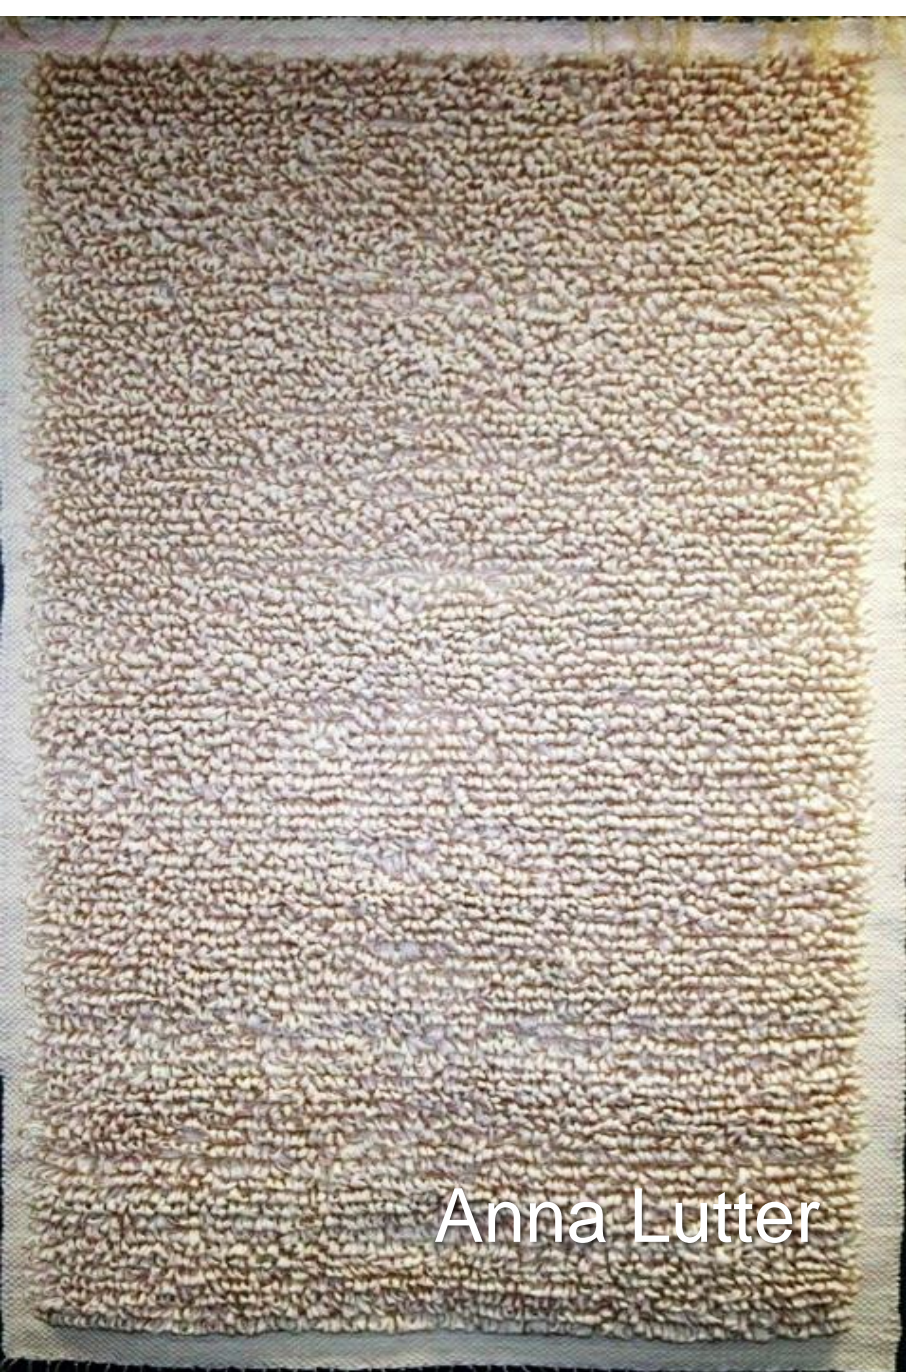 Anna Lutter